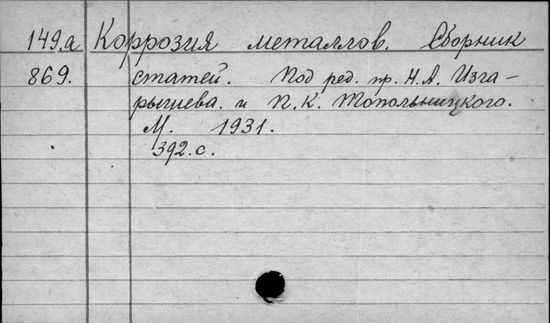 149.а Коррозия металлов. Сборник
869. статей. Под ред. пр. Н.А. Изга-
рышева. и П.К. Топольницкого.
М. 1931.
392.с.